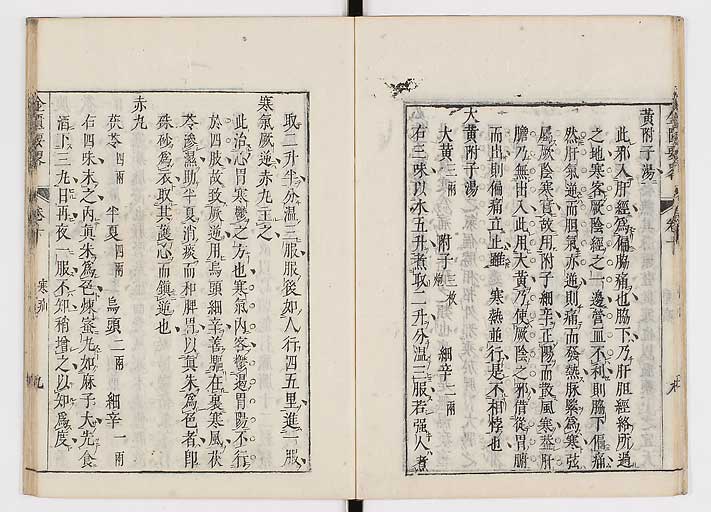 黃附子湯
此邪入肝經爲偏脇痛也脇下乃肝胆經絡所過
之地寒客厥陰經之一邊營血不利則脇下偏痛
然肝氣逆而胆氣亦逆則痛而發熱脉緊爲寒弦
屬厥陰寒實故用附子細辛正陽而散風寒蓋肝
膽乃無出入此用大黃乃使厥陰之邪借從胃腑
而出則偏痛立止雖 寒熱並行是不相悖也
大黃附子湯
大黃三兩 附子三枚炮 細辛二兩
右三味以水五升煮取二升分溫三服若强人煮
取二升半分溫三服服後如人行四五里進一服
寒氣厥逆赤丸主之
此治心胃寒鬱之方也寒氣內客鬱遏胃陽不行
於四肢故致厥逆用烏頭細辛善驅在裏寒風茯
苓滲濕助半夏消痰而和脾胃以眞朱爲色者卽
硃砂爲衣取其護心而鎭逆也
赤丸
茯苓四兩 半夏四兩 烏頭二兩 細辛一兩
右四味末之內眞朱爲色煉蜜丸如麻子大先食
酒下三丸日再夜一服不知稍增之以知爲度
金匱要畧 卷十 寒疝 九